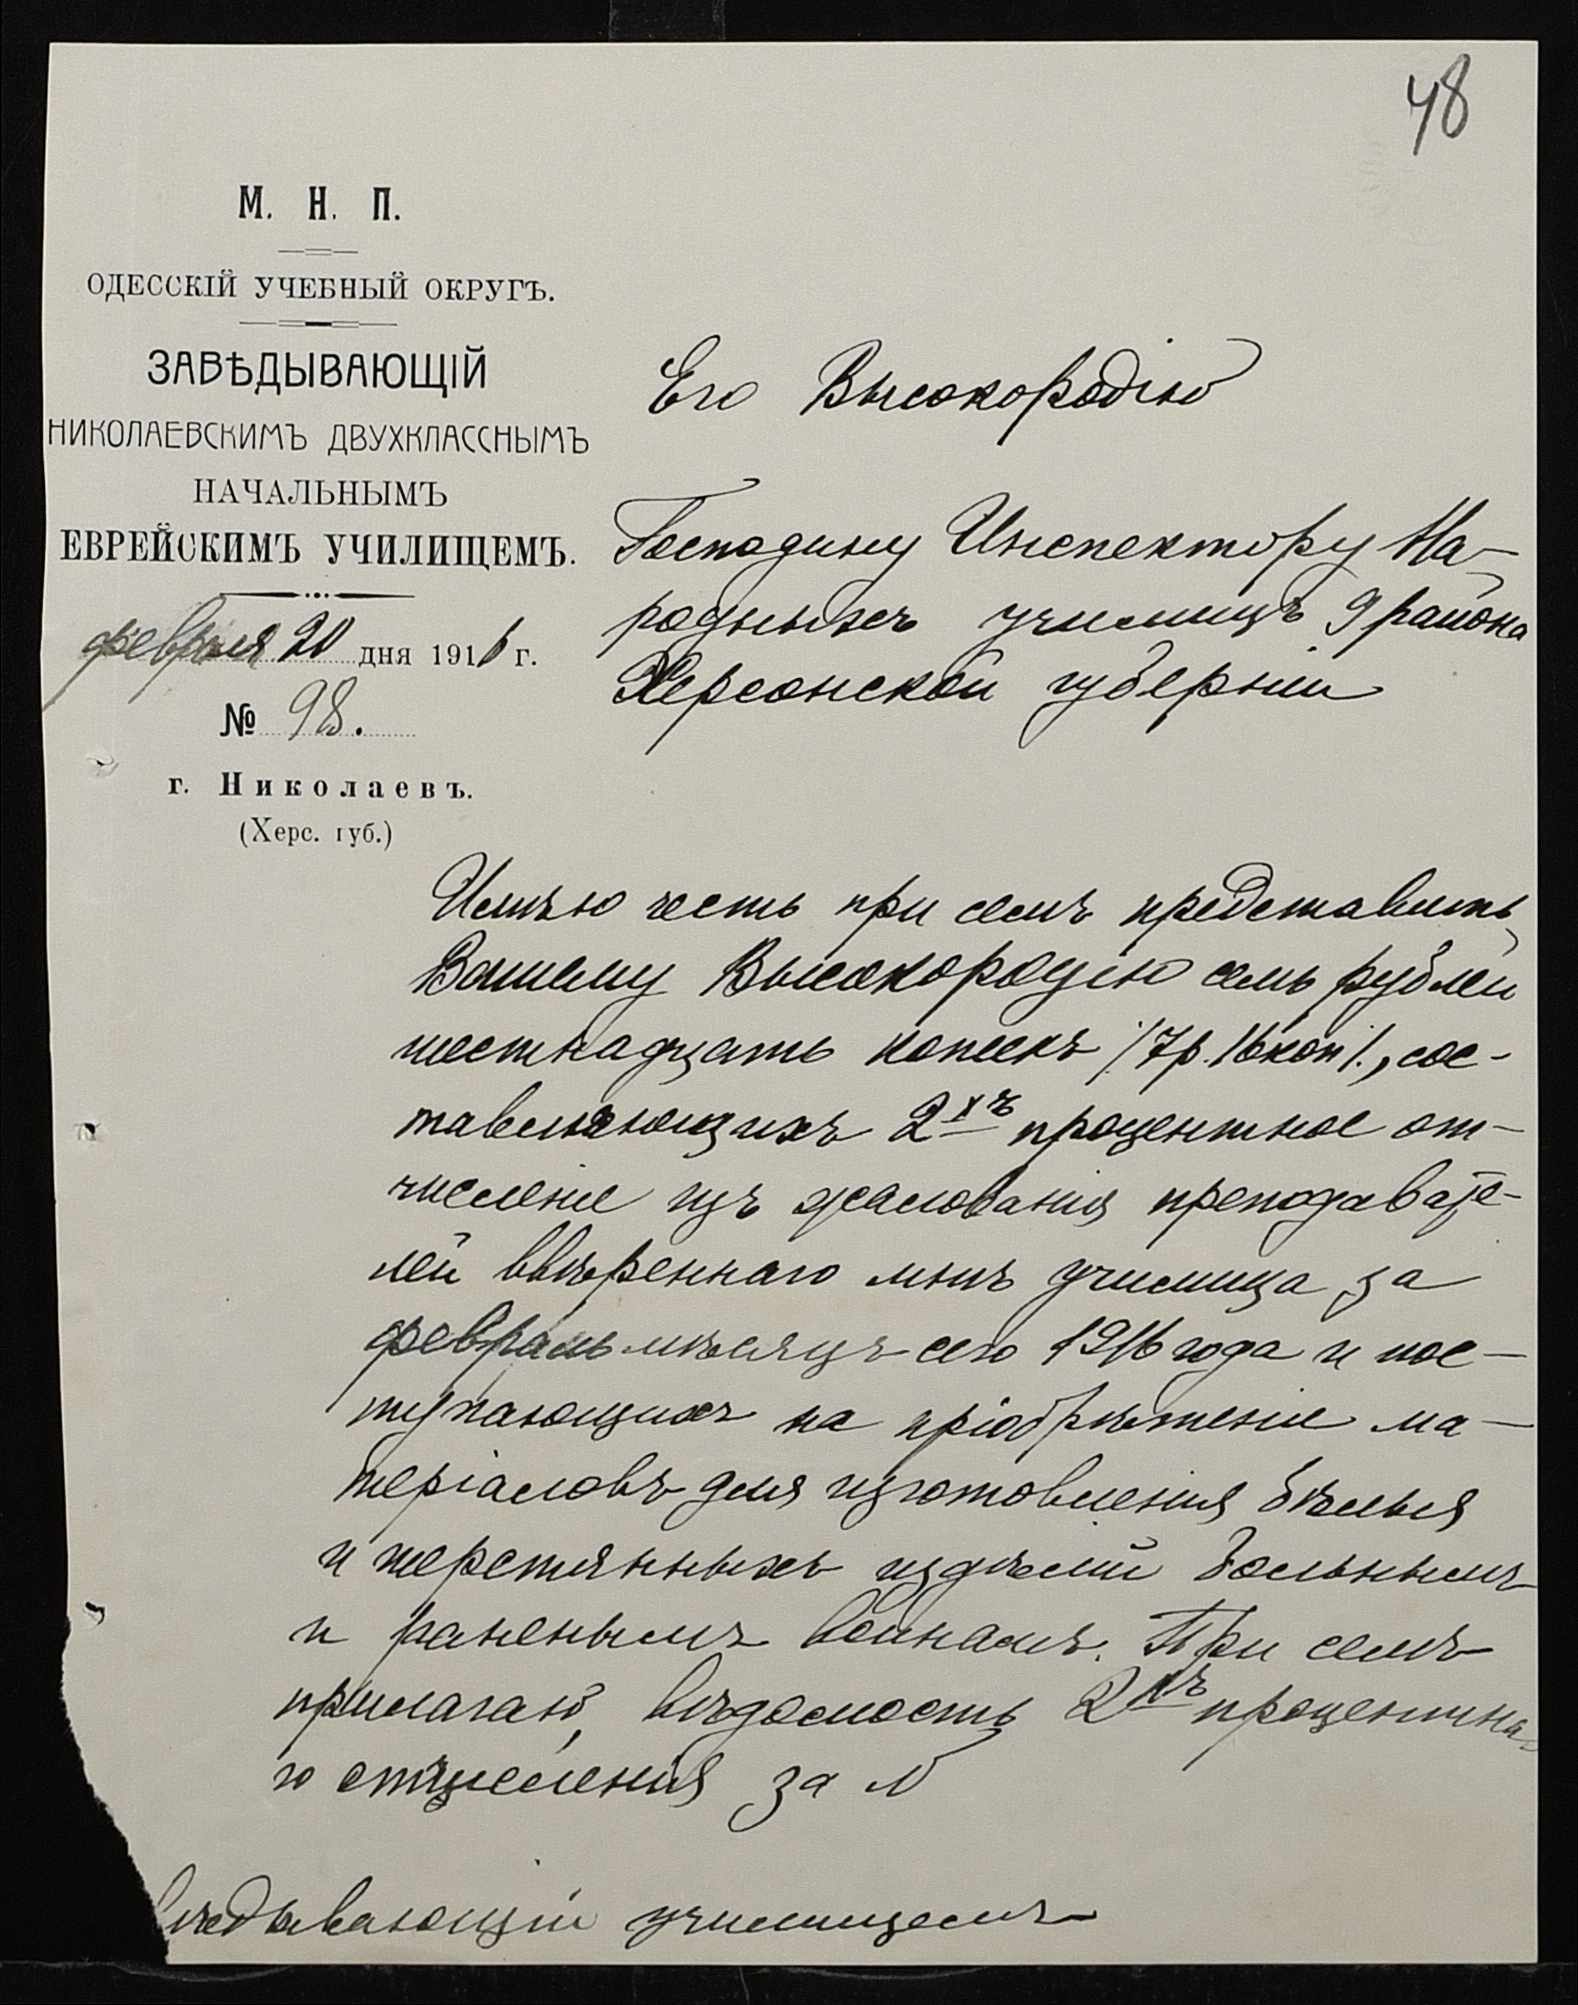 48
М. Н. П.
ОДЕССКІЙ УЧЕБНЫЙ ОКРУГЪ.
ЗАВѢДЫВАЮЩІЙ
НИКОЛАЕВСКИМЪ ДВУХКЛАССНЫМЪ
НАЧАЛЬНЫМЪ
ЕВРЕЙСКИМЪ УЧИЛИЩЕМЪ.
февраля 20 дня 1916 г.
№ 98.
г. Николаевъ.
(Херс. губ.)
Его Высокородію
Господину Инспектору На-
родныхъ училищъ 9 района
Херсонской губерніи
Имѣю честь при семъ представить
Вашему Высокородію семь рублей
шестнадцать копеекъ /7р. 16 коп/., сос-
тавляющихъ 2хъ процентное от-
численіе изъ жалованія преподавате-
лей ввѣреннаго мнѣ училища за
февраль мѣсяцъ сего 1916 года и пос-
тупающихъ на пріобрѣтеніе ма-
теріаловъ для изготовленія бѣлья
и шерстянныхъ издѣлій больнымъ
и раненымъ воинамъ. При семъ
прилагаю вѣдомость 2хъ процентна-
го отчисленія за №
вѣдывающій училищемъ